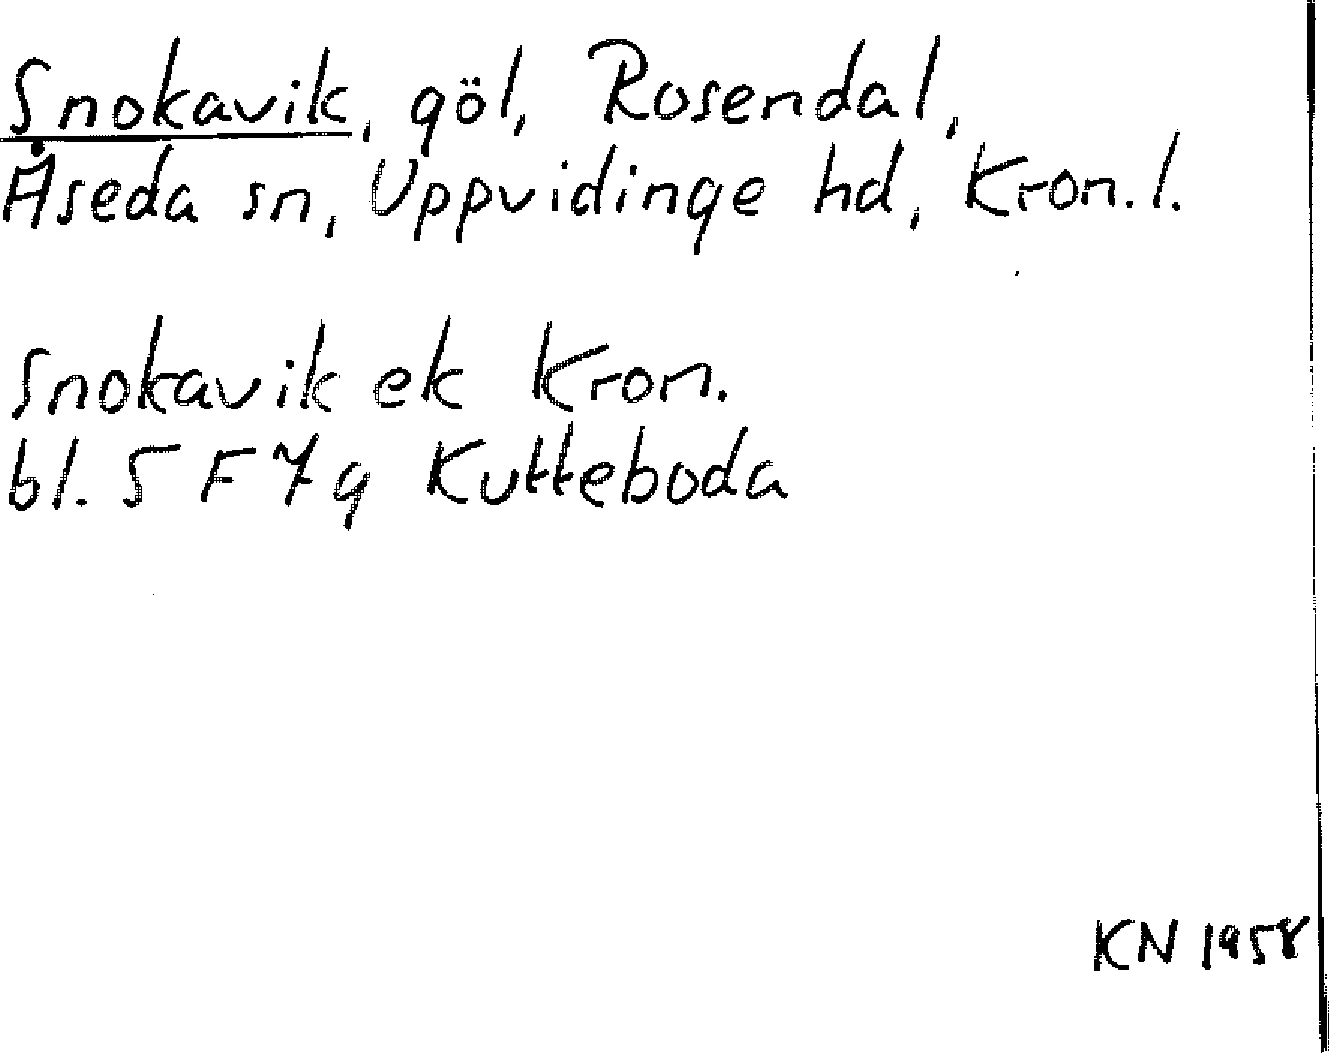 Snokavik, göl, Rosendal,
Åseda sn, Uppvidinge hd, Kron.l.
Snokavik ek Kron.
bl. 5 F 7 g Kutteboda
KN 1958